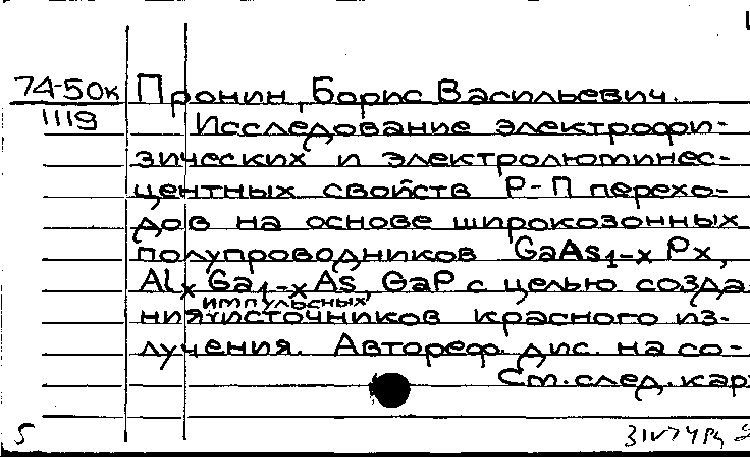 74-50к Пронин, Борис Васильевич.
1119 Исследование электрофи-
зических и электролюминес-
центных свойств Р-П перехо-
дов на основе широкозонных
полупроводников GaAs1-x Px,
Alx Ga1-x As, GaP с целью созда-
импульсных
ния источников красного из-
лучения. Автореф. дис. на со-
См. след. кар
5